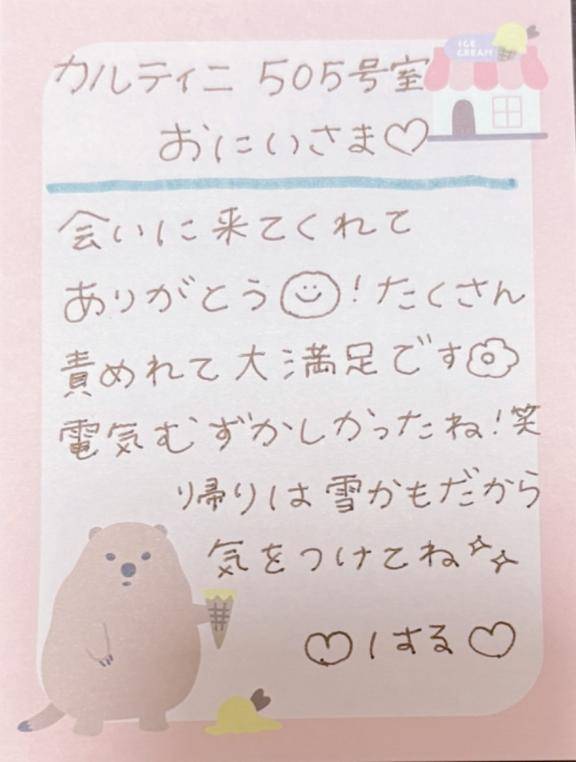 ICE
CREAM
カルティニ 505号室
おにいさま♡
会いに来てくれて
ありがとう☺!たくさん
責めれて大満足です✿
電気むずかしかったね!笑
帰りは雪かもだから
気をつけてね✨
♡はる♡